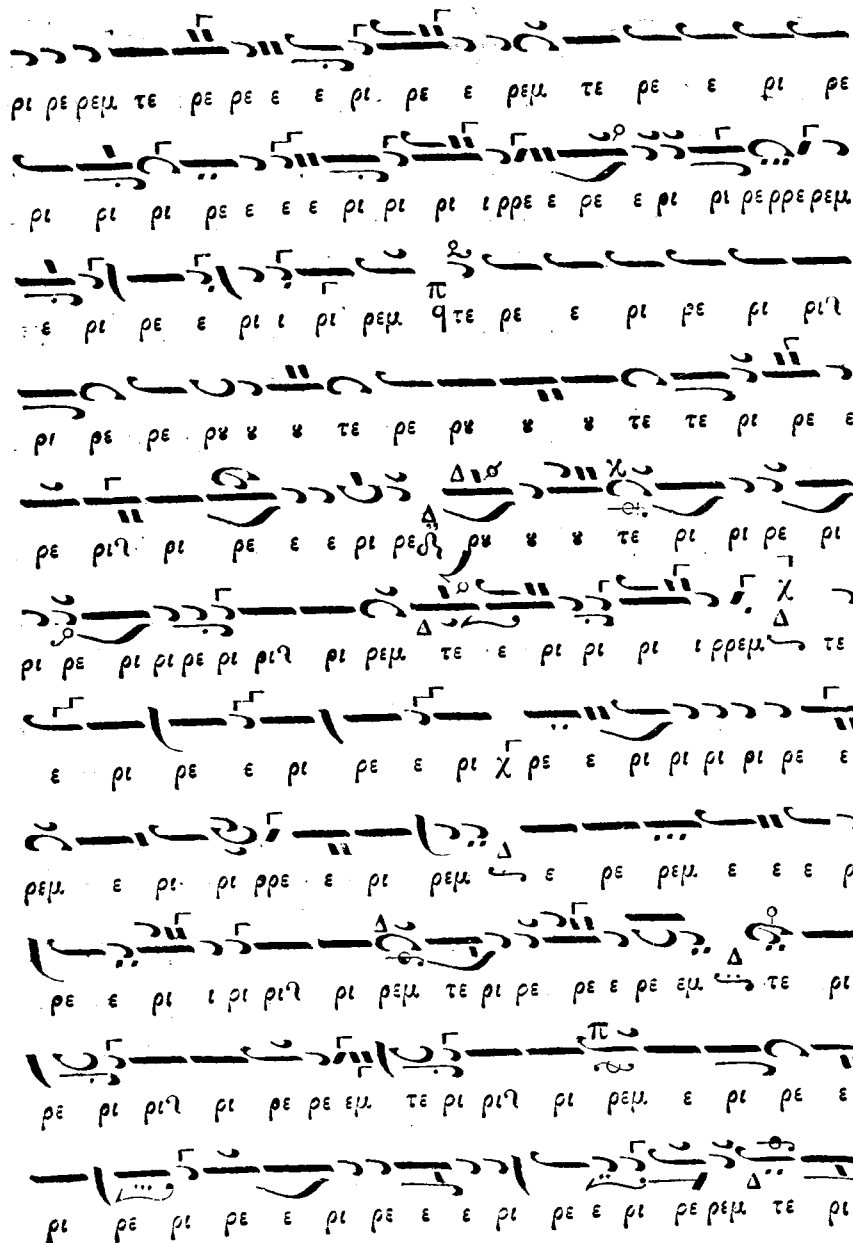 ρι ρε ρεμ τε ρε ρε ε ε ρι ρε ε ρεμ τε ρε ε ρι ρε
ρι ρι ρι ρε ε ε ε ρι ρι ρι ι ρρε ε ρε ε ρι ρι ρε ρρε ρεμ
ε ρι ρε ε ρι ι ρι ρεμ τε ρε ε ρι ρε ρι ριλ
ρι ρε ρε ρȣ ȣ ȣ τε ρε ρȣ ȣ ȣ τε τε ρι ρε ε
ρε ριλ ρι ρε ε ε ρι ρε ρȣ ȣ ȣ τε ρι ρι ρε ρι
ρι ρε ρι ρι ρε ρι ριλ ρι ρεμ τε ε ρι ρι ρι ι ρρεμ τε
ε ρι ρε ε ρι ρε ε ρι χ ρε ε ρι ρι ρι ρι ρε ε
ρεμ ε ρι ρι ρρε ε ρι ρεμ ε ρε ρεμ ε ε ε ρι
ρε ε ρι ι ρι ριλ ρι ρεμ τε ρι ρε ρε ε ρε εμ τε ρι
ρε ρι ριλ ρι ρε ρε εμ τε ρι ριλ ρι ρεμ ε ρι ρε ε
ρι ρε ρι ρε ε ρι ρε ε ε ρι ρε ε ρι ρε ρεμ τε ρι